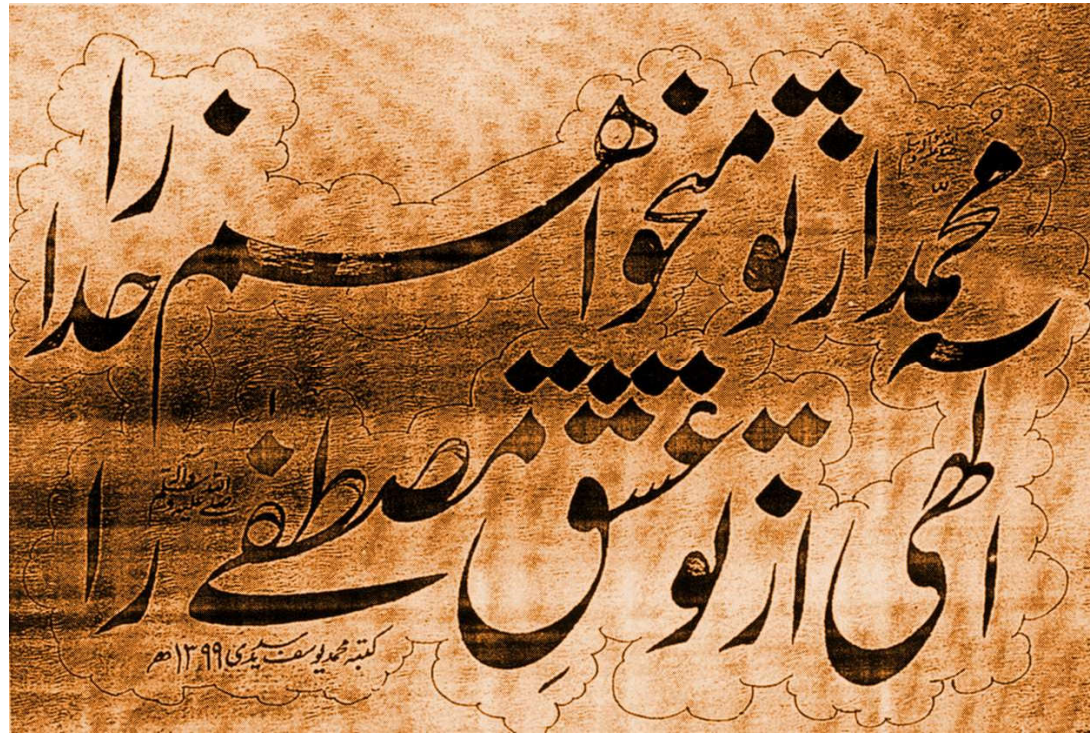 محمدؐ از تو میخواہم خدا را
الٰہی از تو عشقِ مصطفےٰؐ را
کتبہ محمد یوسف سدیدی ۱۳۹۹ھ